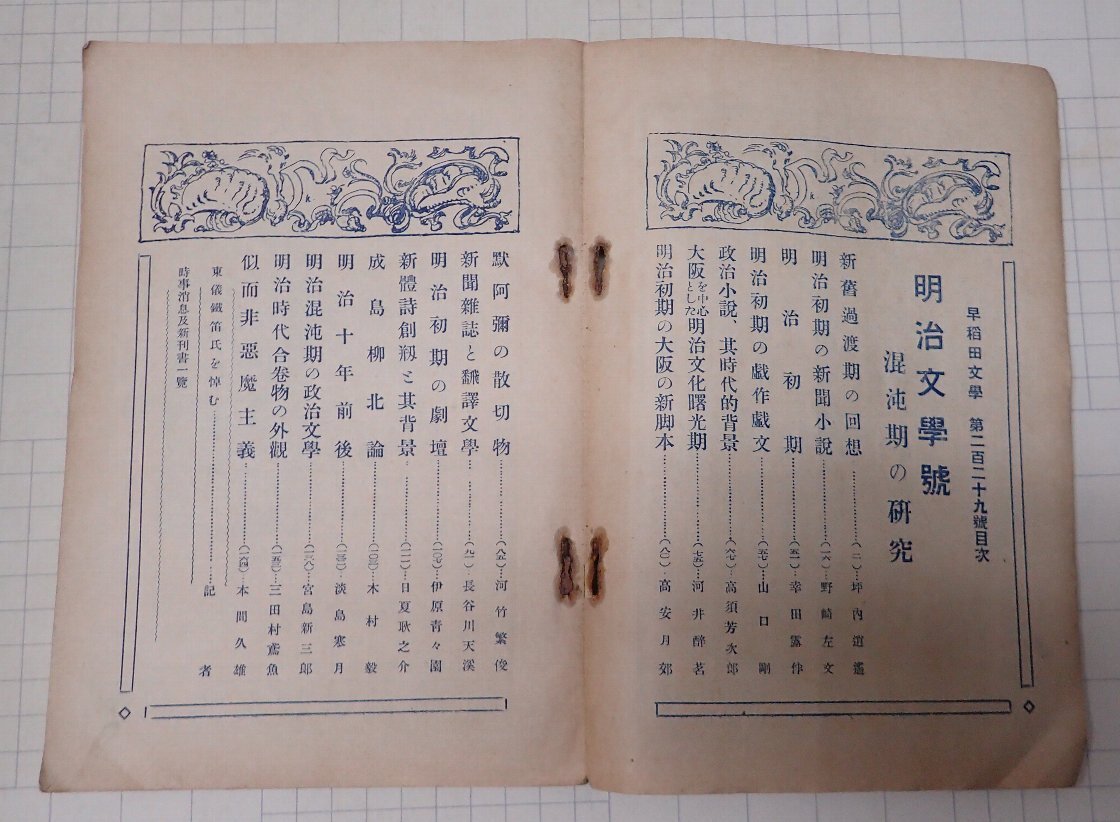 早稻田文學 第二百二十九號目次
明治文學號
混沌期の研究
新舊過渡期の回想……(二)…坪內逍遙
明治初期の新聞小說……(一六)…野崎左文
明治初期……(五一)…幸田露伴
明治初期の戲作戲文……(五七)…山口剛
政治小說、其時代的背景……(六七)…高須芳次郎
大阪を中心とした明治文化曙光期……(七五)…河井醉茗
明治初期の大阪の新脚本……(八〇)…高安月郊
默阿彌の散切物……(八五)…河竹繁俊
新聞雜誌と飜譯文學……(九一)…長谷川天溪
明治初期の劇壇……(一〇七)…伊原青々園
新體詩創剏と其背景……(一一一)…日夏耿之介
成島柳北論……(一〇三)…木村毅
明治十年前後……(一三三)…淡島寒月
明治混沌期の政治文學……(一三八)…宮島新三郎
明治時代合卷物の外觀……(一五三)…三田村鳶魚
似而非惡魔主義……(一六四)…本間久雄
東儀鐵笛氏を悼む……記者
時事消息及新刊書一覽